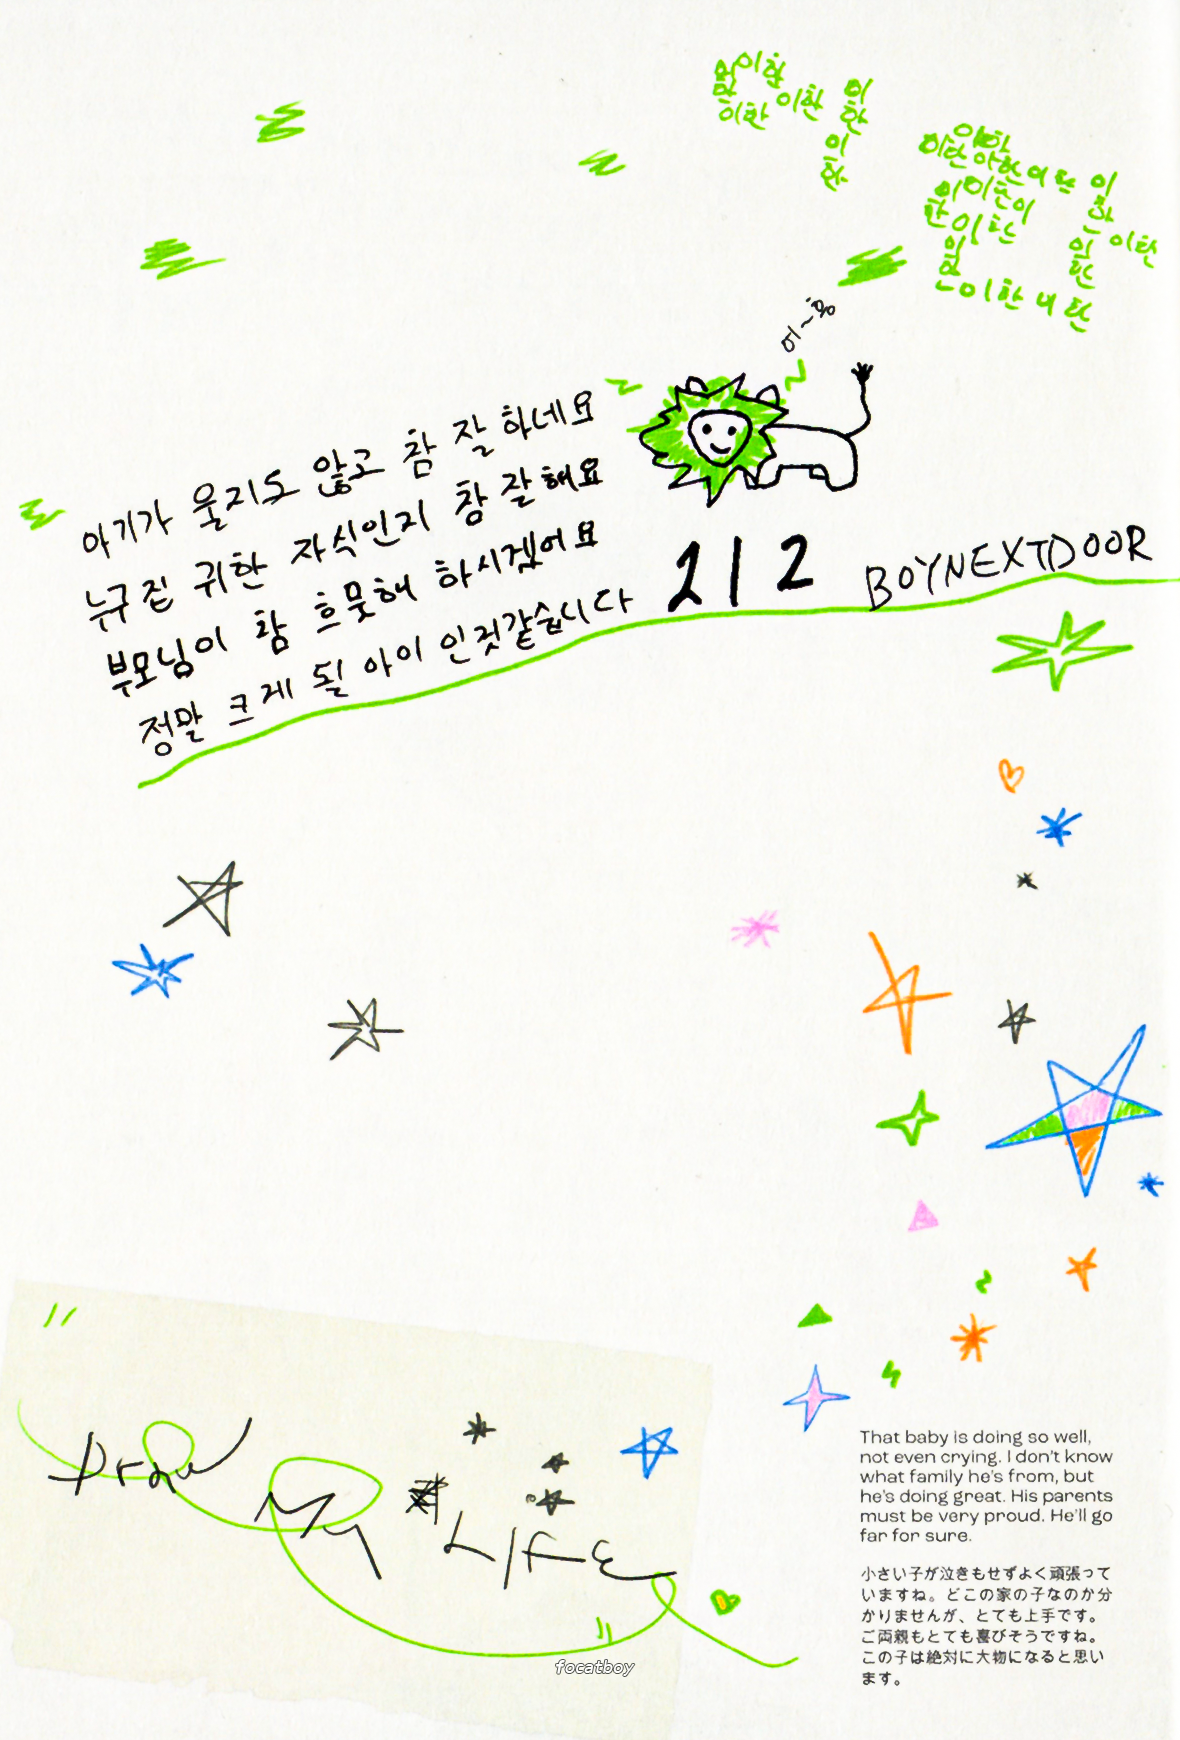 이한
이한
이한
이한
이한
이한
이~한
아기가 울지도 않고 참 잘 하네요
누구 집 귀한 자식인지 참 잘해요
부모님이 참 흐뭇해 하시겠어요
정말 크게 될 아이 인것같습니다
212 BOYNEXTDOOR
"
Draw
My
LIFE
"
focatboy
That baby is doing so well,
not even crying. I don't know
what family he's from, but
he's doing great. His parents
must be very proud. He'll go
far for sure.
小さい子が泣きもせずよく頑張って
いますね。どこの家の子なのか分
かりませんが、とても上手です。
ご両親もとても喜びそうですね。
この子は絶対に大物になると思い
ます。